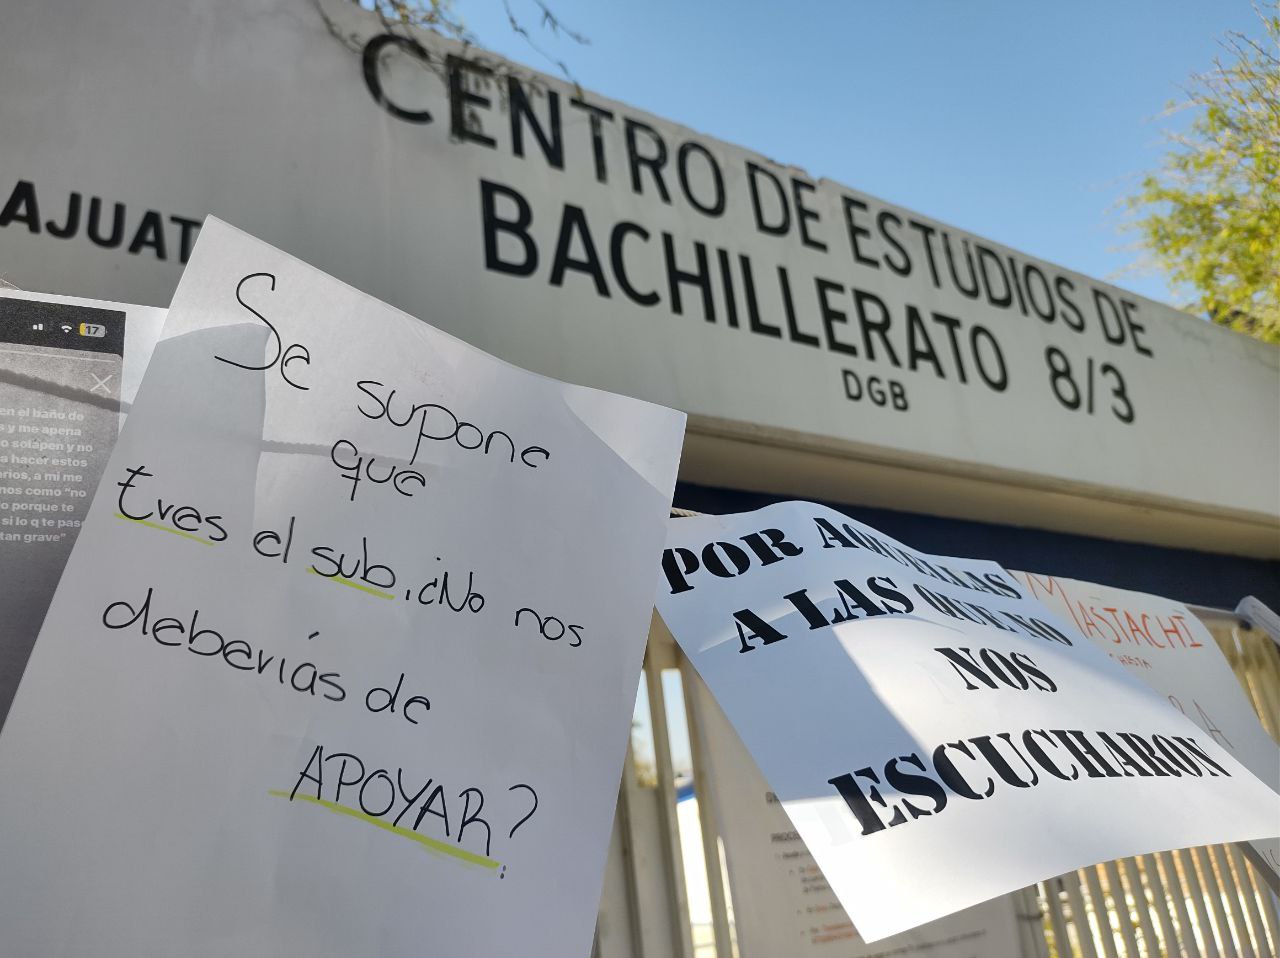 CENTRO DE ESTUDIOS DE
BACHILLERATO 8/3
DGB
AJUAT
17
en el baño de
s y me apena
o solapen y no
a hacer estos
arios, a mi me
nos como "no
o porque te
si lo q te paso
tan grave"
Se supone
que
Eres el sub, ¿No nos
deberiás de
APOYAR?
POR AQUELLAS
A LAS QUE NO
NOS
ESCUCHARON
MASTACHI